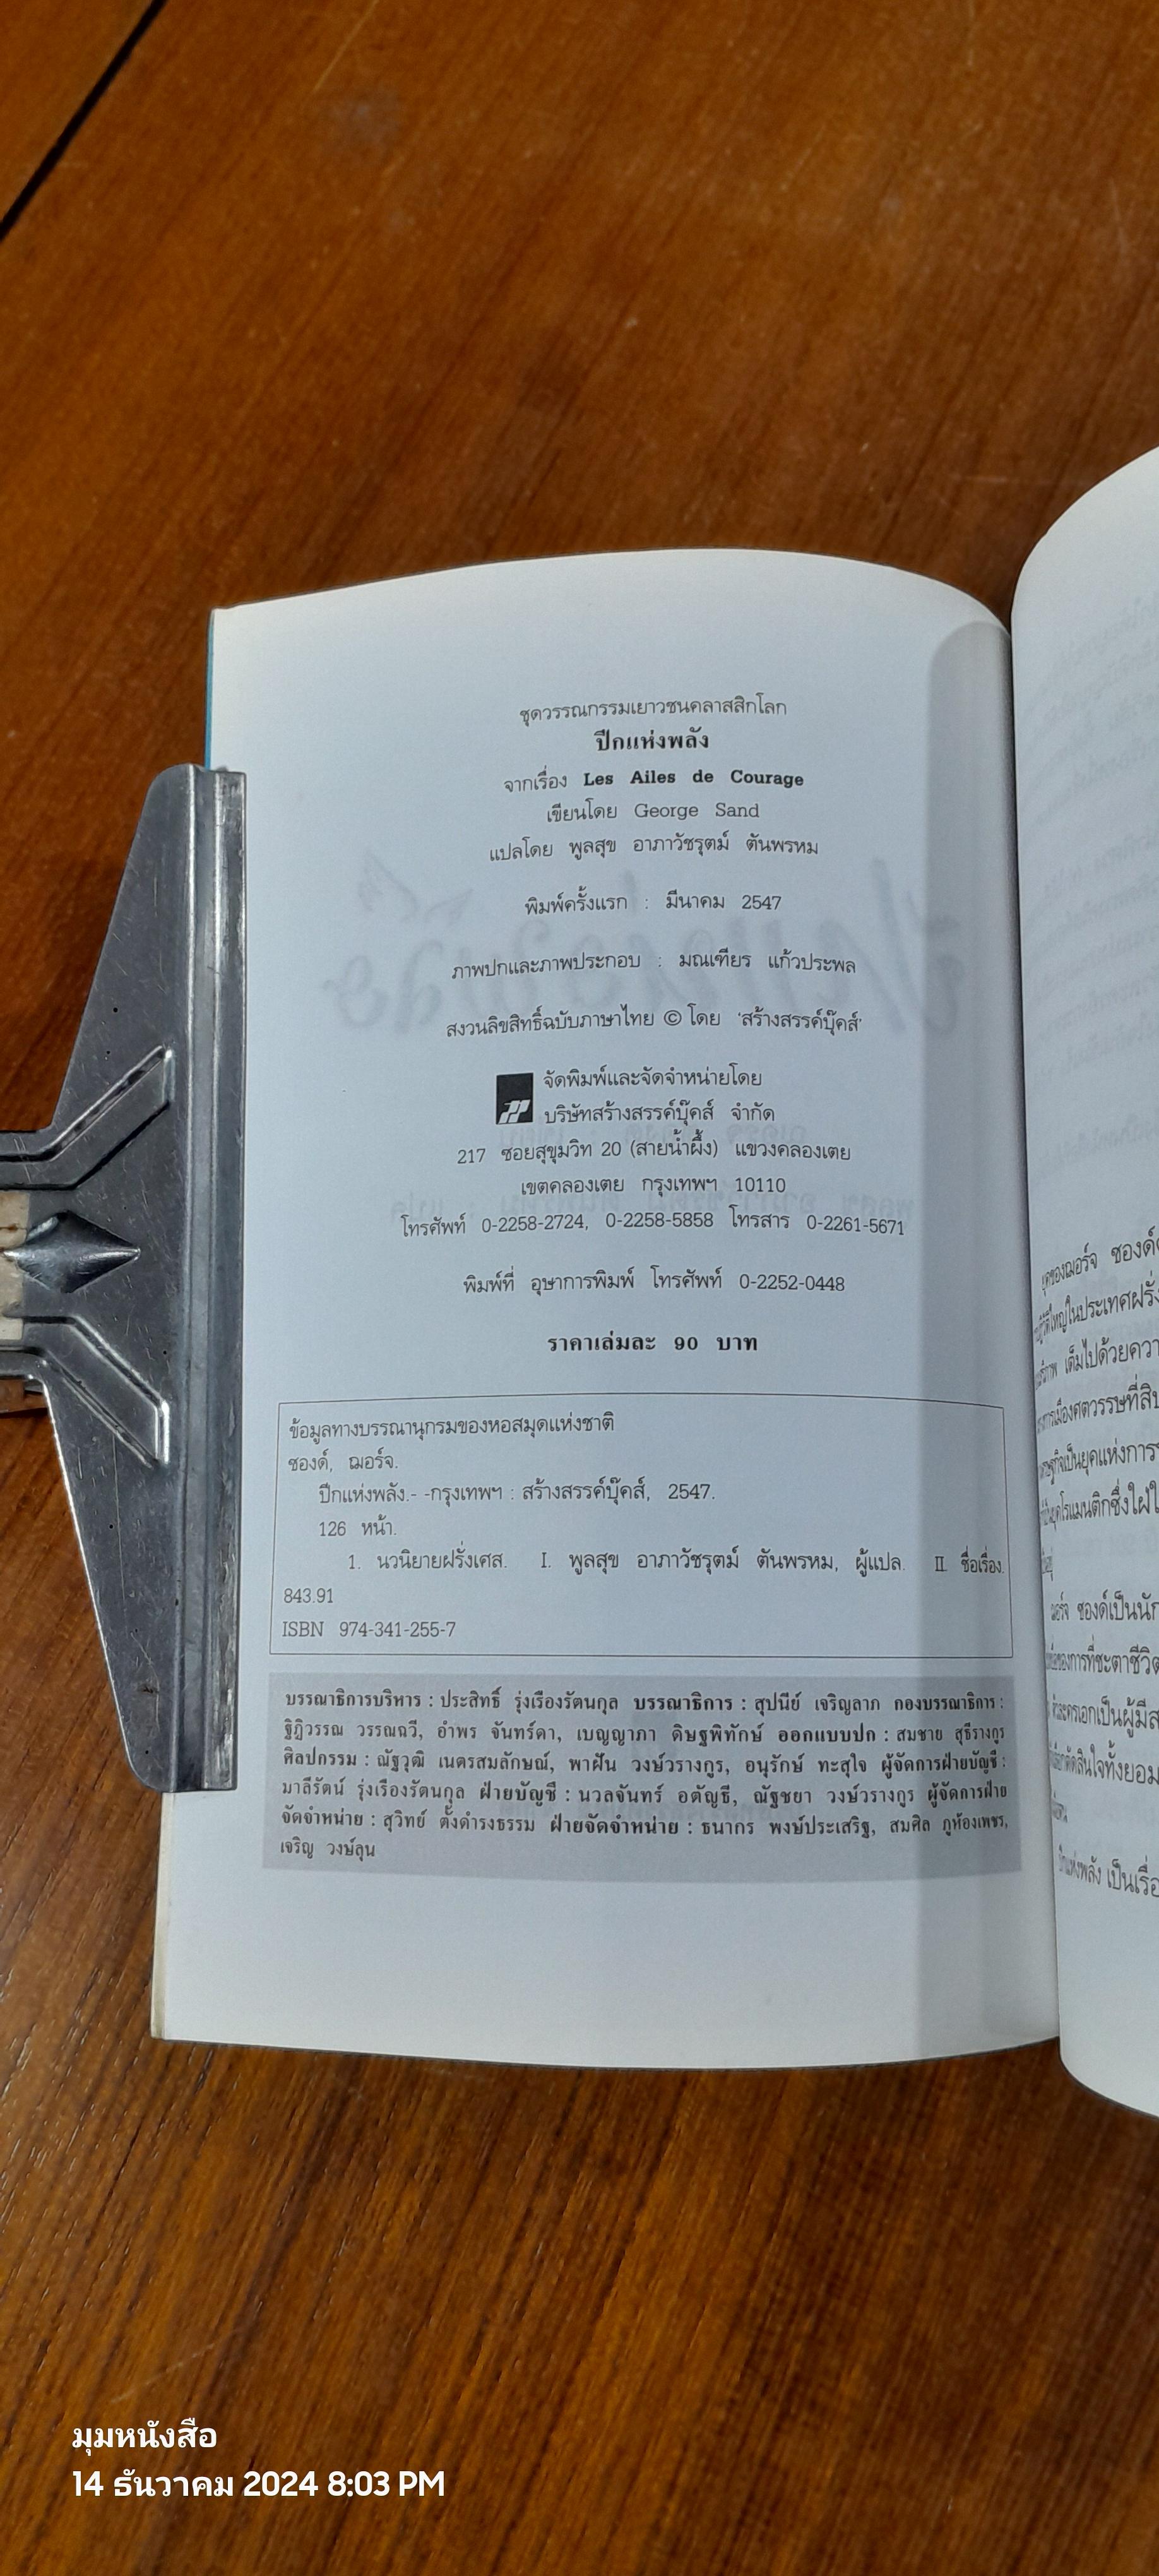 ชุดวรรณกรรมเยาวชนคลาสสิกโลก
ปีกแห่งพลัง
จากเรื่อง Les Ailes de Courage
เขียนโดย George Sand
แปลโดย พูลสุข อาภาวัชรุตม์ ตันพรหม
พิมพ์ครั้งแรก : มีนาคม 2547
ภาพปกและภาพประกอบ : มณเฑียร แก้วประพล
สงวนลิขสิทธิ์ฉบับภาษาไทย © โดย 'สร้างสรรค์บุ๊คส์'
จัดพิมพ์และจัดจำหน่ายโดย
บริษัทสร้างสรรค์บุ๊คส์ จำกัด
217 ซอยสุขุมวิท 20 (สายน้ำผึ้ง) แขวงคลองเตย
เขตคลองเตย กรุงเทพฯ 10110
โทรศัพท์ 0-2258-2724, 0-2258-5858 โทรสาร 0-2261-5671
พิมพ์ที่ อุษาการพิมพ์ โทรศัพท์ 0-2252-0448
ราคาเล่มละ 90 บาท
ข้อมูลทางบรรณานุกรมของหอสมุดแห่งชาติ
ซองด์, ฌอร์จ.
ปีกแห่งพลัง.- -กรุงเทพฯ : สร้างสรรค์บุ๊คส์, 2547.
126 หน้า.
1. นวนิยายฝรั่งเศส. I. พูลสุข อาภาวัชรุตม์ ตันพรหม, ผู้แปล. II. ชื่อเรื่อง.
843.91
ISBN 974-341-255-7
บรรณาธิการบริหาร : ประสิทธิ์ รุ่งเรืองรัตนกุล บรรณาธิการ : สุปนีย์ เจริญลาภ กองบรรณาธิการ :
ฐิฏิวรรณ วรรณฉวี, อำพร จันทร์ดา, เบญญาภา ดิษฐพิทักษ์ ออกแบบปก : สมชาย สุธีรางกูร
ศิลปกรรม : ณัฐวุฒิ เนตรสมลักษณ์, พาฝัน วงษ์วรางกูร, อนุรักษ์ ทะสุใจ ผู้จัดการฝ่ายบัญชี :
มาลีรัตน์ รุ่งเรืองรัตนกุล ฝ่ายบัญชี : นวลจันทร์ อตัญธี, ณัฐชยา วงษ์วรางกูร ผู้จัดการฝ่าย
จัดจำหน่าย : สุวิทย์ ตั้งดำรงธรรม ฝ่ายจัดจำหน่าย : ธนากร พงษ์ประเสริฐ, สมศิล ภูห้องเพชร,
เจริญ วงษ์ลุน
ของฌอร์จ ซองด์
ใหญ่ในประเทศฝรั่ง
เต็มไปด้วยควา
ศตวรรษที่สิบ
เป็นยุคแห่งการ
โรแมนติกซึ่งใฝ่
ซองด์เป็นนัก
ของการที่ชะตาชีวิต
เป็นผู้มีส
ตัดสินใจทั้งยอม
ปีกแห่งพลัง เป็นเรื่อ
มุมหนังสือ
14 ธันวาคม 2024 8:03 PM